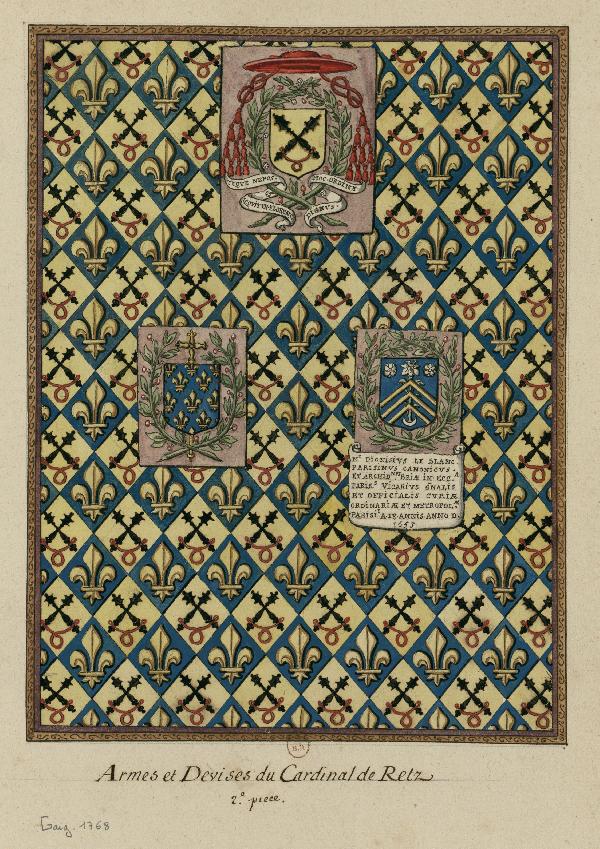 HOC ORDINE
DIGNUS
Mr DIONISIVS LE BLANC
PARISINVS CANONICVS
ET ARCHIDNVS BRIÆ IN ECCA
PARISA VICARIVS GNALIS
ET OFFICIALIS CVRIÆ
ORDINARIÆ ET METROPOLÆ
PARISIA A. 18 ANNIS. ANNO D.
1653
Armes et Devises du Cardinal de Retz
2e piece.
Gaig. 1768